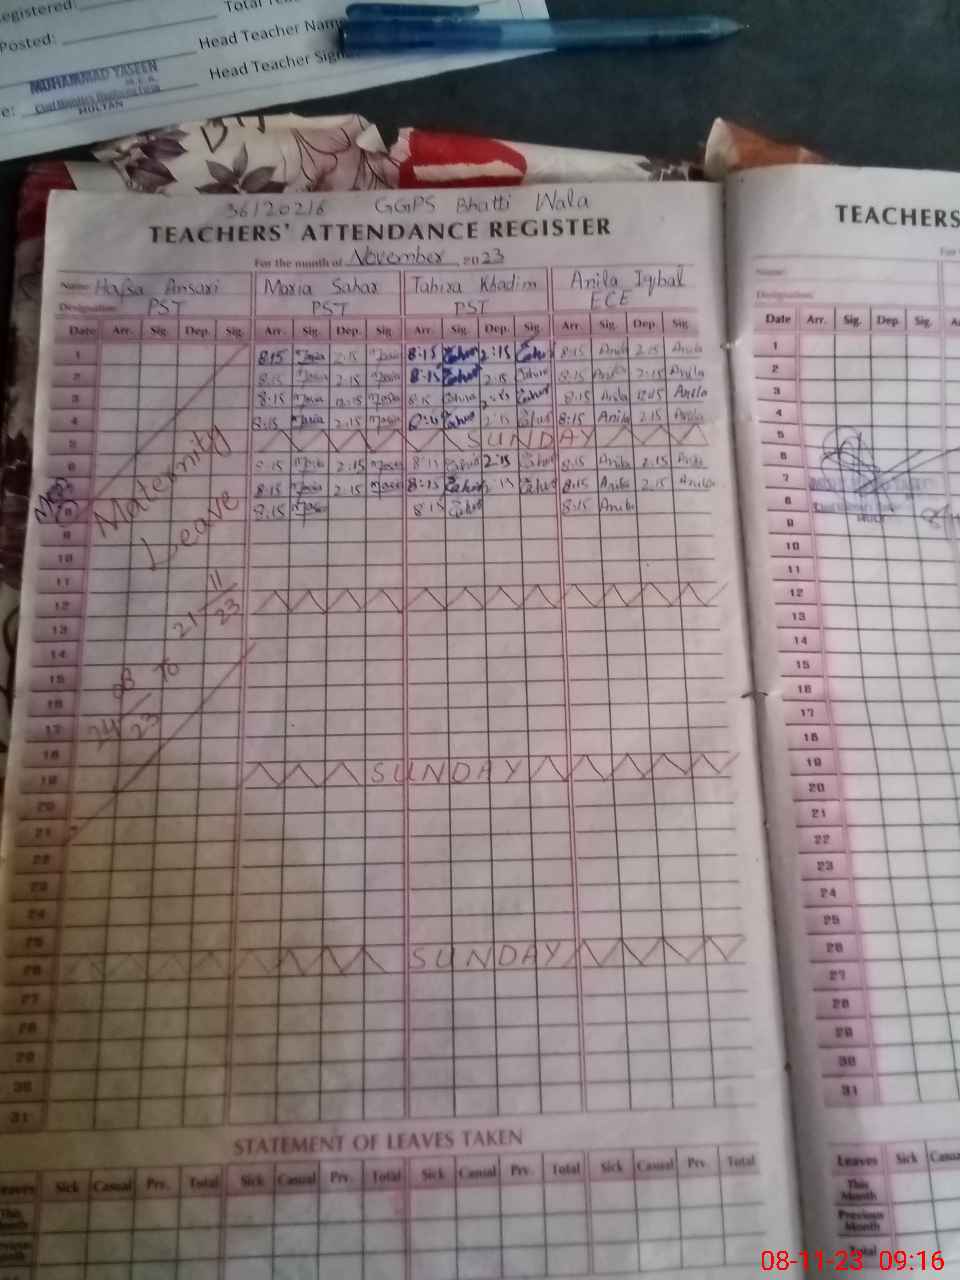 Registered:
Posted:
Head Teacher Name
Head Teacher Sign
MUHAMMAD YASEEN
MULTAN
36120216 GGPS Bhatti Wala
TEACHERS' ATTENDANCE REGISTER
For the month of November 2023
Name: Hafsa Ansari Maria Sahar Tahira Khadim Anila Iqbal
Designation: PST PST PST ECE
Date Arr. Sig. Dep. Sig. Arr. Sig. Dep. Sig. Arr. Sig. Dep. Sig. Arr. Sig. Dep. Sig.
1 8:15 Maria 2:15 Maria 8:15 2:15 8:15 Anila 2:15 Anila
2 8:15 Maria 2:15 Maria 8:15 2:15 8:15 Anila 2:15 Anila
3 8:15 Maria 12:15 Maria 8:15 8:15 Anila 12:15 Anila
4 8:15 Maria 2:15 Maria 2:15 8:15 Anila 2:15 Anila
5 SUNDAY
6 8:15 Maria 2:15 Maria 8:15 2:15 8:15 Anila 2:15 Anila
7 8:15 Maria 2:15 Maria 8:15 2:15 8:15 Anila 2:15 Anila
8 8:15 8:15 8:15 Anila
Maternity
Leave
9
10
11
12
13
14
15
16
17
18
19 SUNDAY
20
21
22
23
24
25
26 SUNDAY
27
28
29
30
31
STATEMENT OF LEAVES TAKEN
Leaves Sick Casual Prv. Total Sick Casual Prv. Total Sick Casual Prv. Total Sick Casual Prv. Total
This Month
TEACHERS
Name:
Designation:
Date Arr. Sig. Dep. Sig.
1
2
3
4
5
6
7
8
9
10
11
12
13
14
15
16
17
18
19
20
21
22
23
24
25
26
27
28
29
30
31
Leaves Sick Casual
This Month
Previous Month
Total
08-11-23 09:16